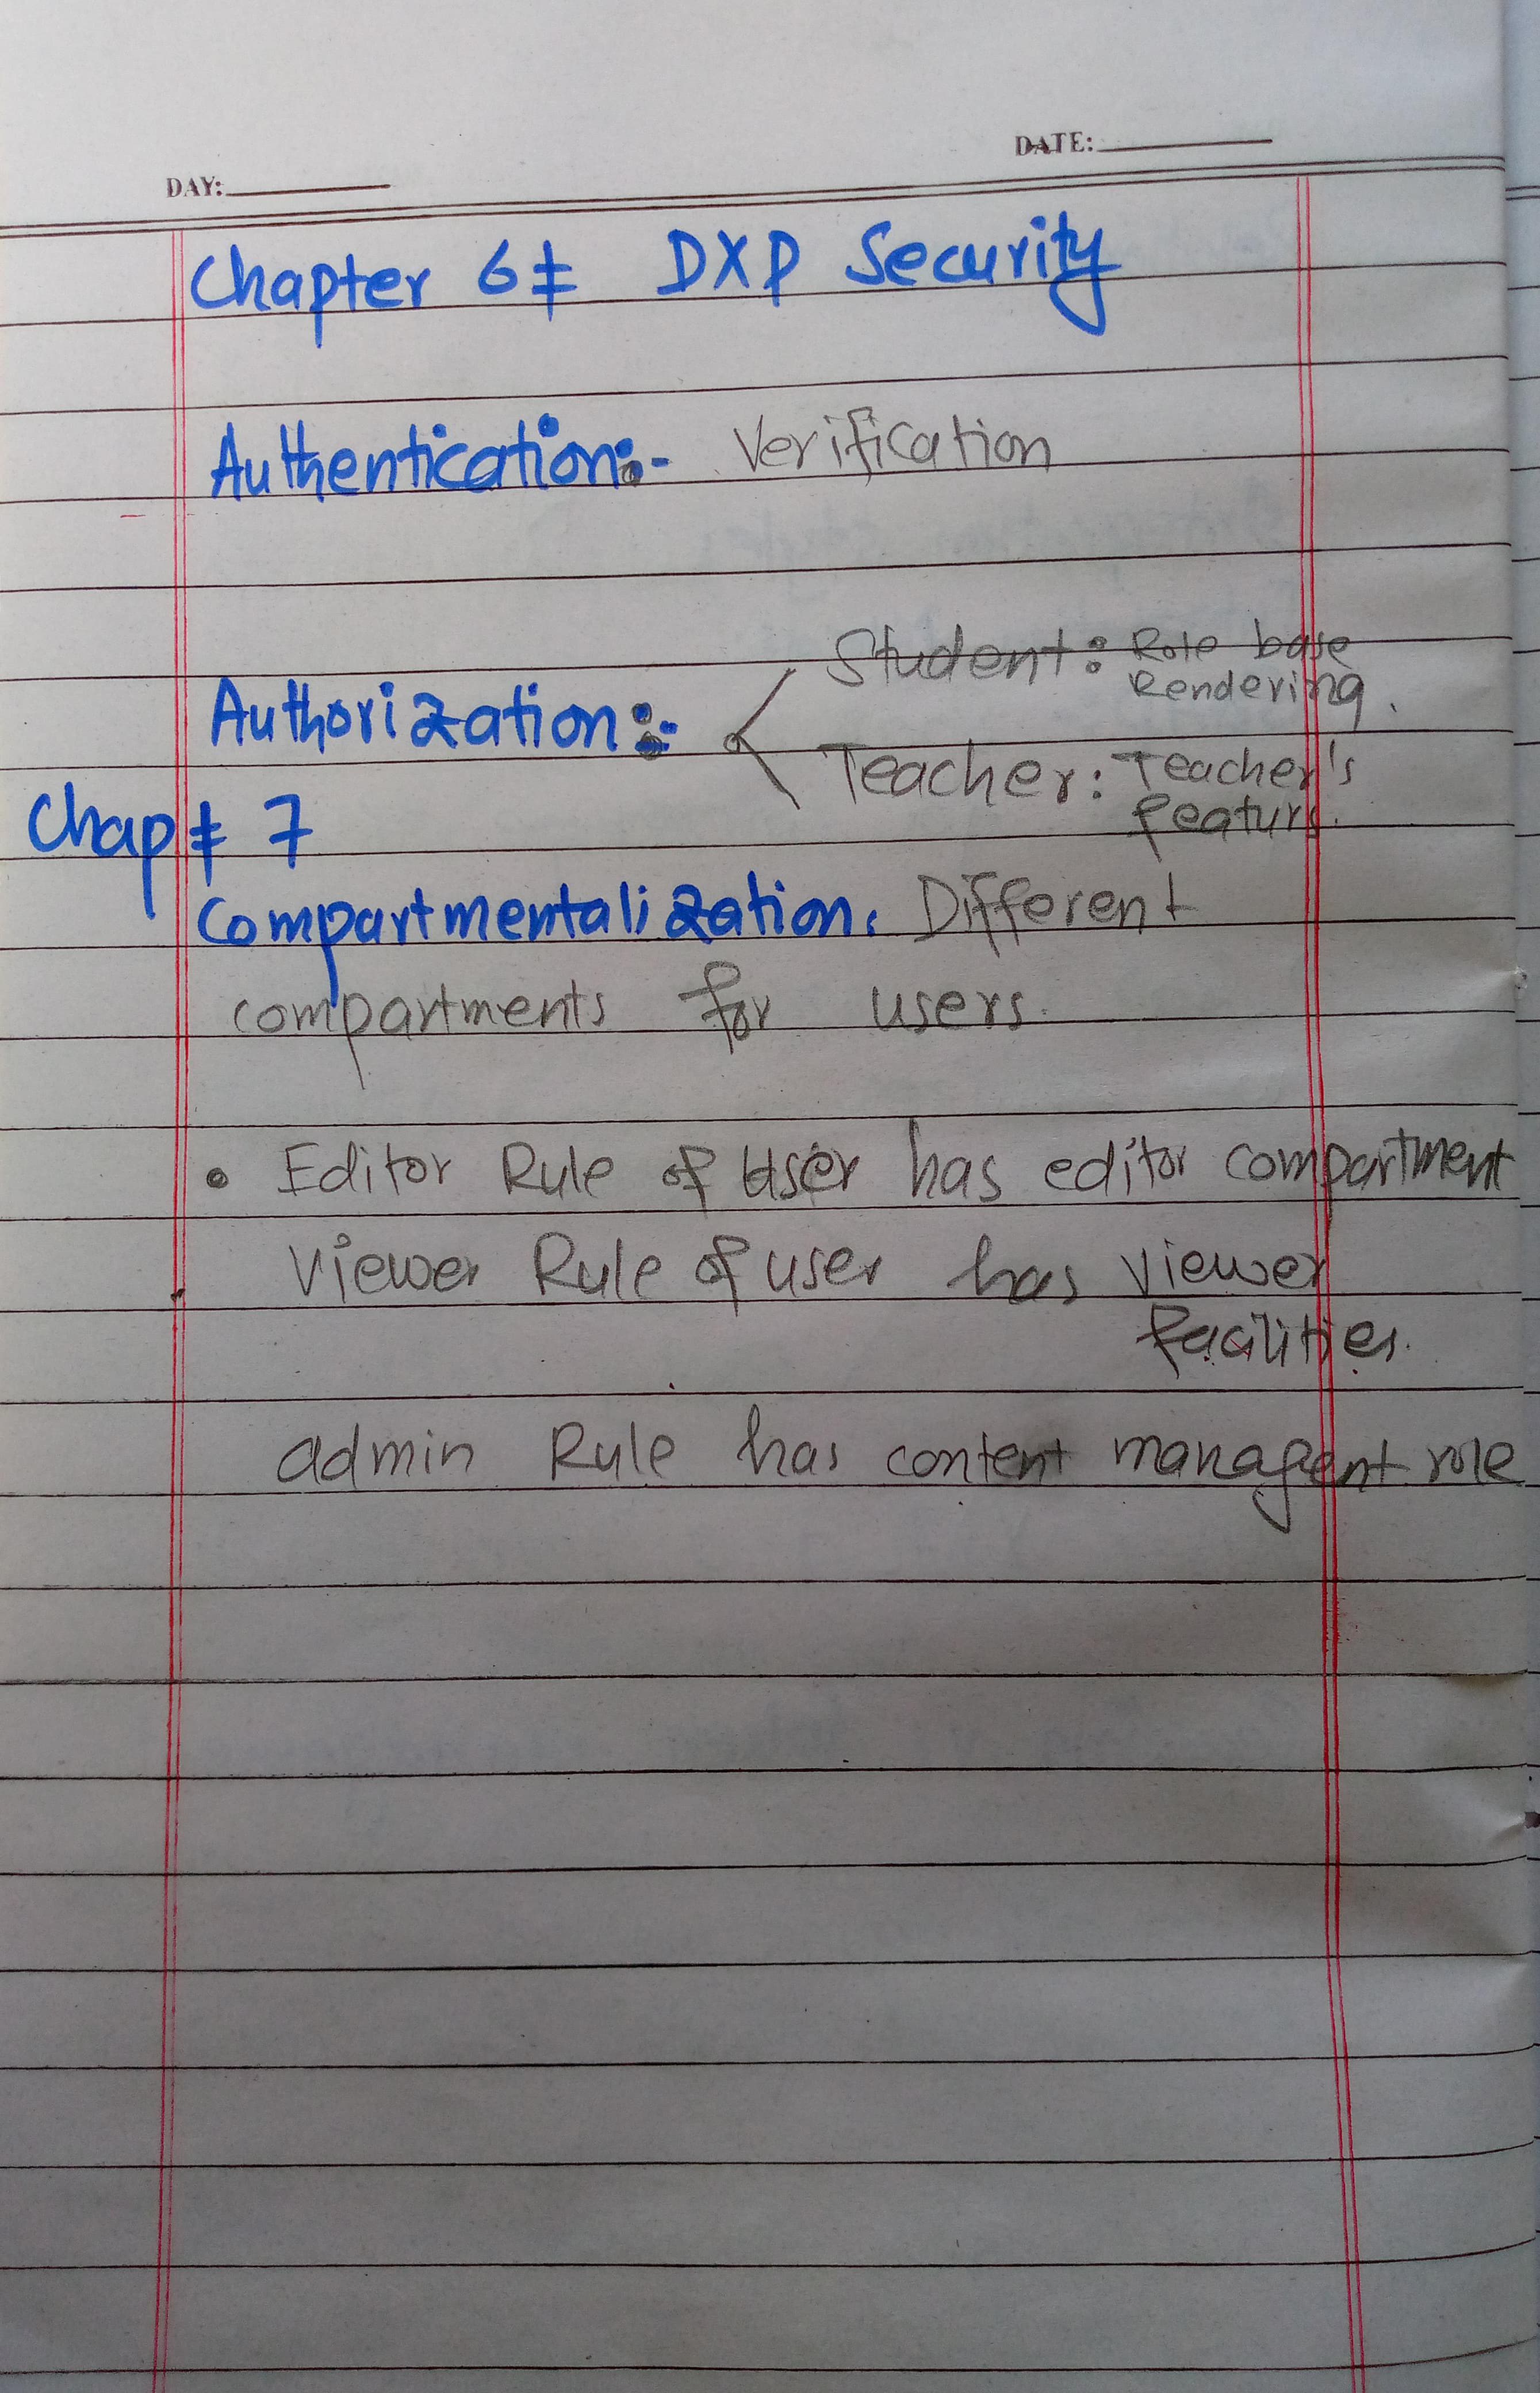 DATE:
DAY:
Chapter 6 ‡ DXP Security
Authentication:- Verification
Student: Role base
Rendering.
Authorization:-
Teacher: Teacher's
featurs.
Chapt ‡ 7
Compartmentalization: Different
compartments for users.
• Editor Rule of User has editor compartment
Viewer Rule of user has viewer
facilities.
admin Rule has content managent role